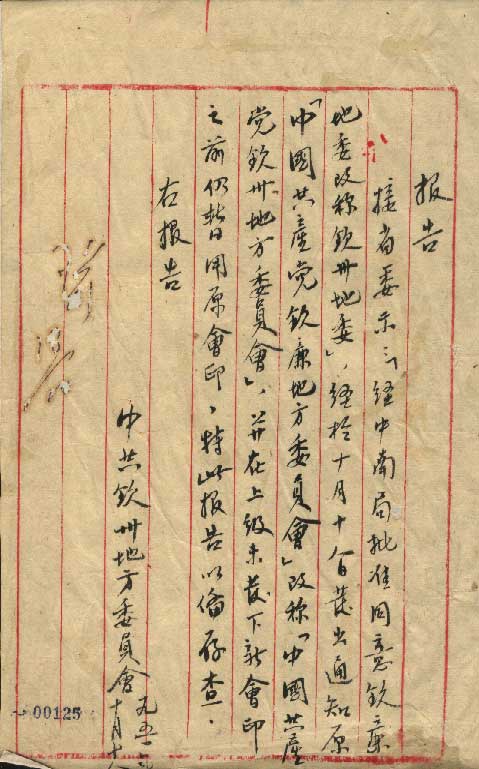 报告
接省委示：经中南局批准同意钦廉
地委改称钦州地委」，经於十月十八日发出通知原
「中國共產党钦廉地方委員會」改称「中國共產
党钦州地方委員會」，并在上级未发下新會印
之前仍暂用原會印，特此报告以備存查.
右报告
中共钦州地方委員會
十月十八
00125